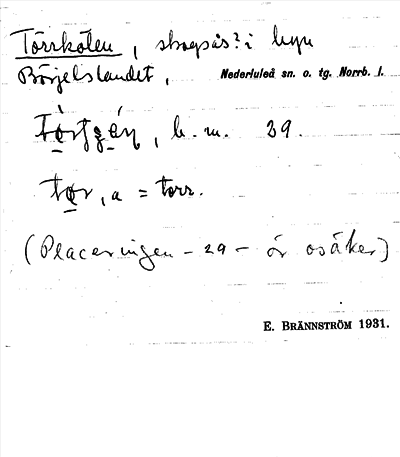 Torrkölen, skogsås? i byn
Börjelslandet, Nederluleå sn. o. tg. Norrb. l.
b. m. 29.
tør, a = torr.
(Placeringen - 29 - är osäker)
E. BRÄNNSTRÖM 1931.